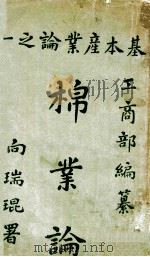 基本產業論之一
工商部編纂
棉業論
向瑞琨署